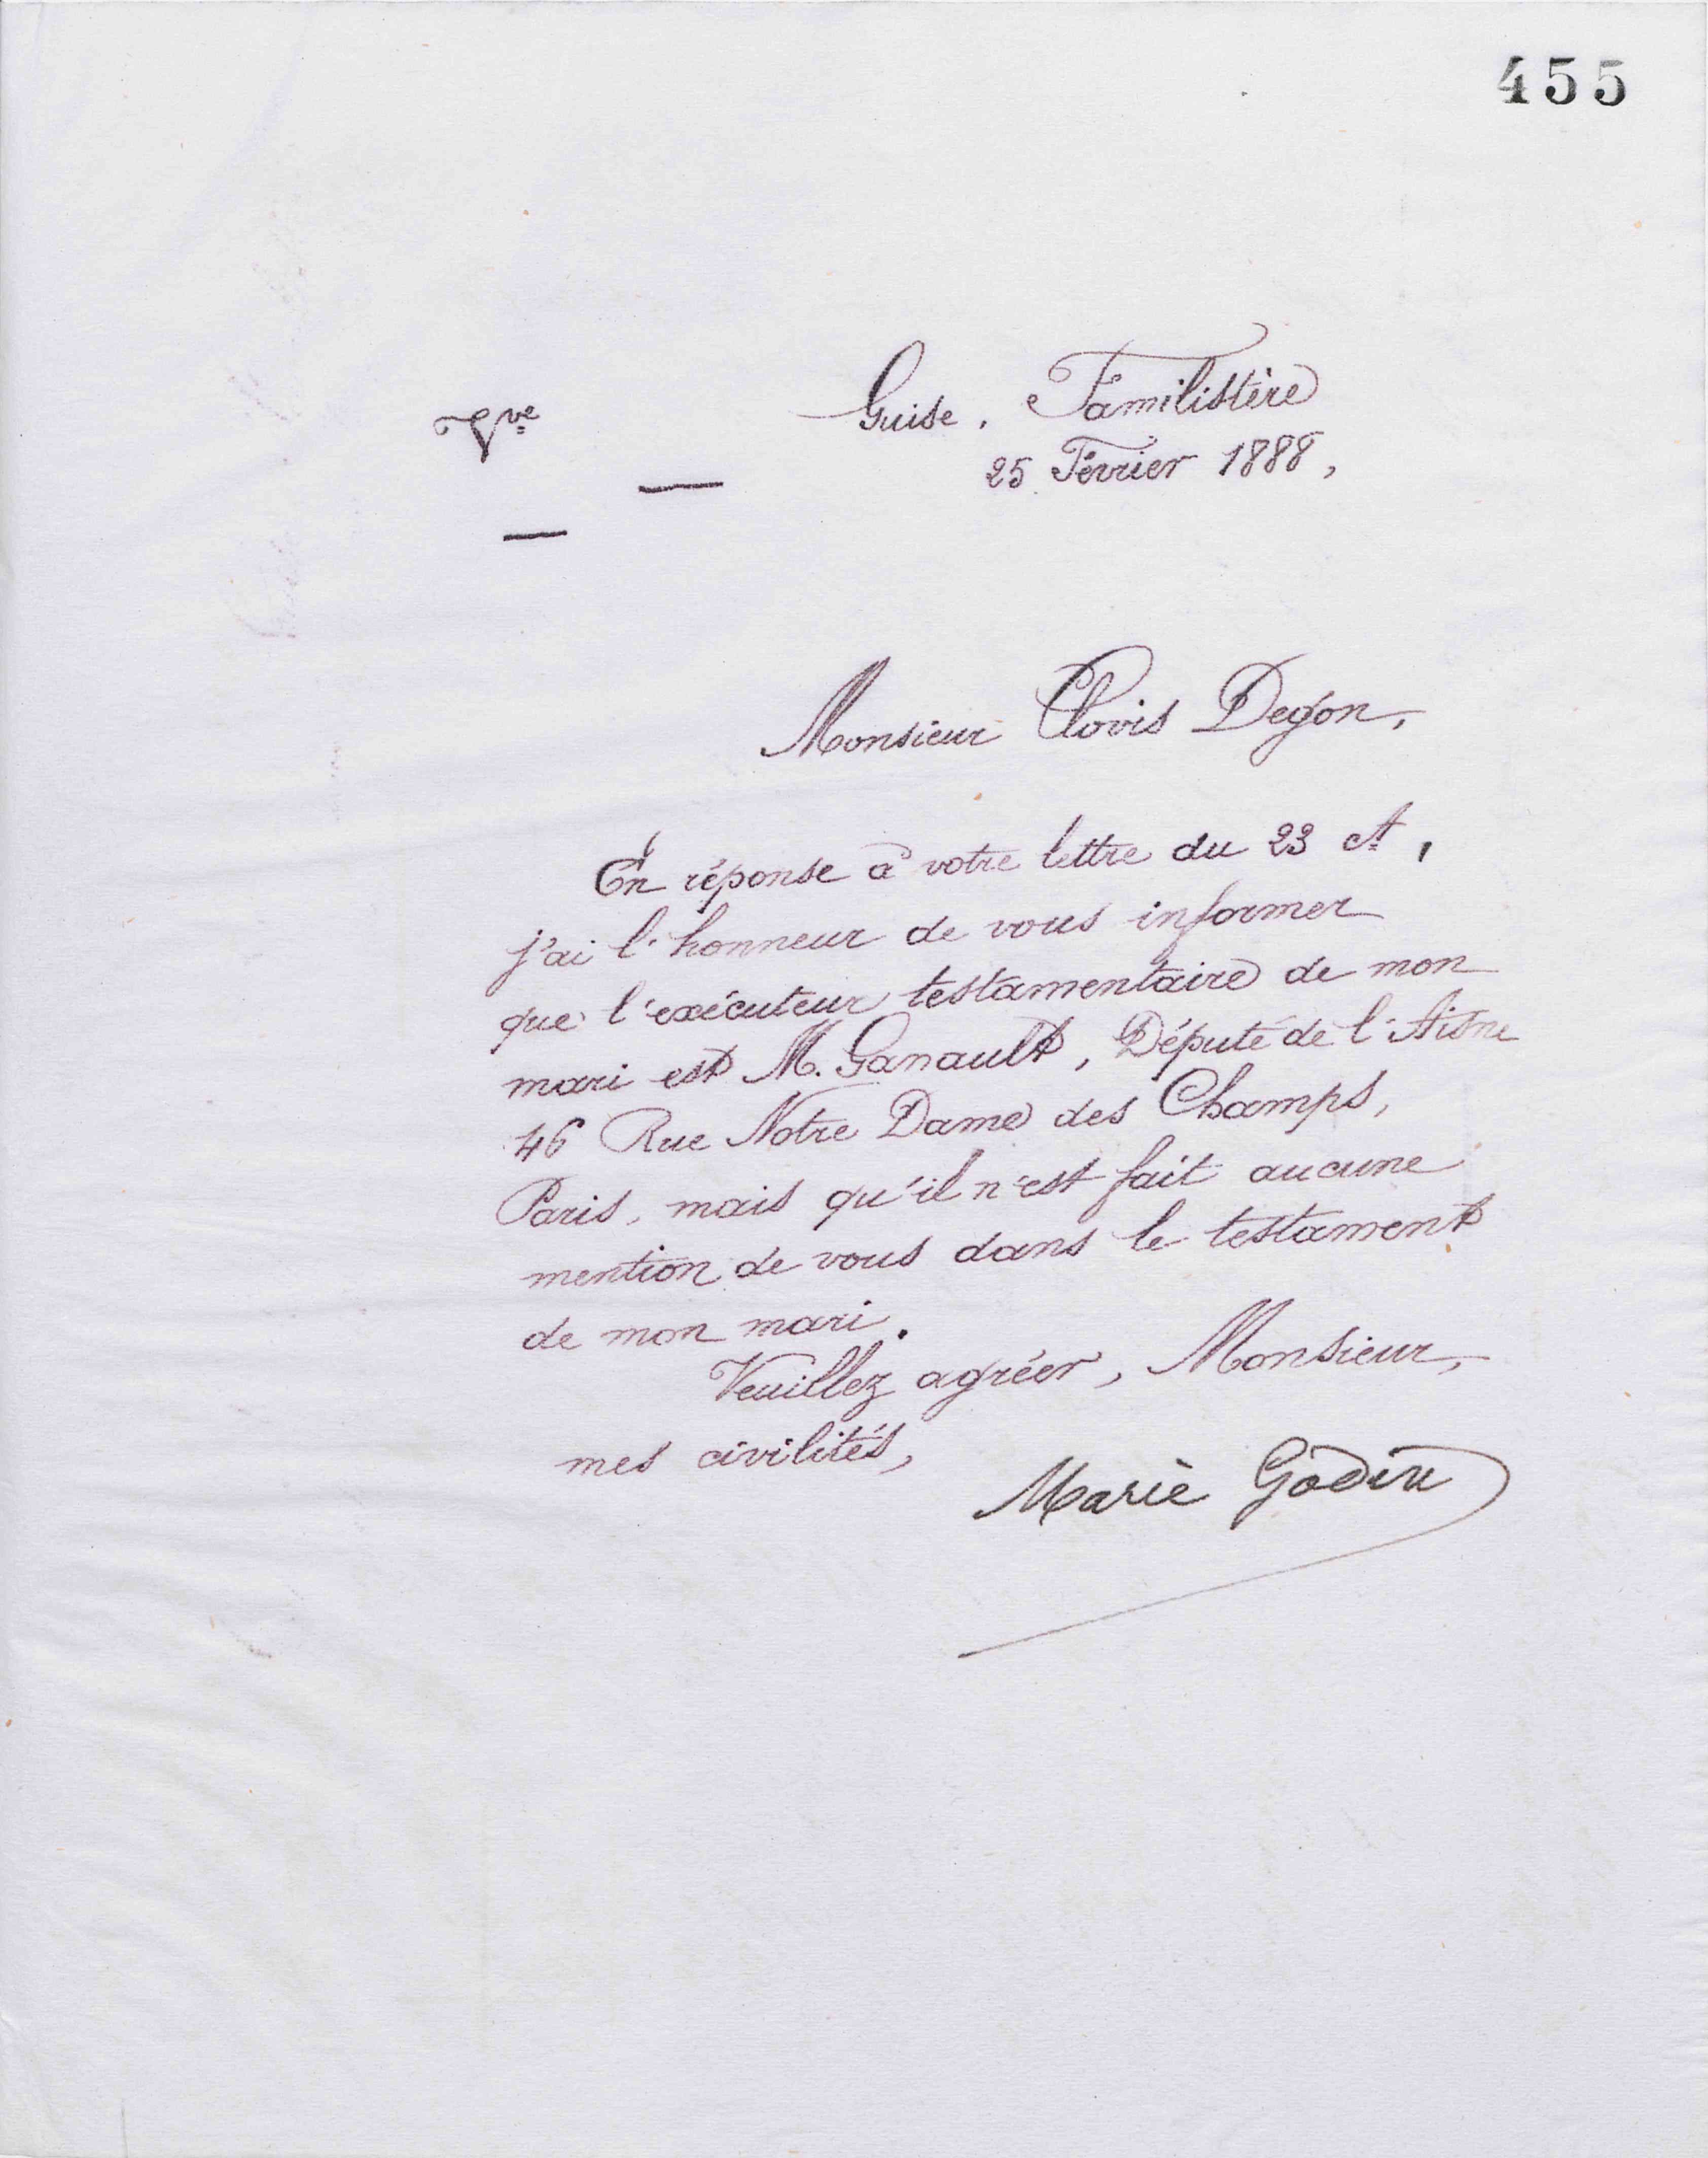 455
Vve
Guise, Familistère
25 Février 1888,
Monsieur Clovis Degon,
En réponse à votre lettre du 23 ct,
j'ai l'honneur de vous informer
que l'exécuteur testamentaire de mon
mari est M. Ganault, Député de l'Aisne
46 Rue Notre Dame des Champs,
Paris, mais qu'il n'est fait aucune
mention de vous dans le testament
de mon mari.
Veuillez agréer, Monsieur,
mes civilités,
Marie Godin